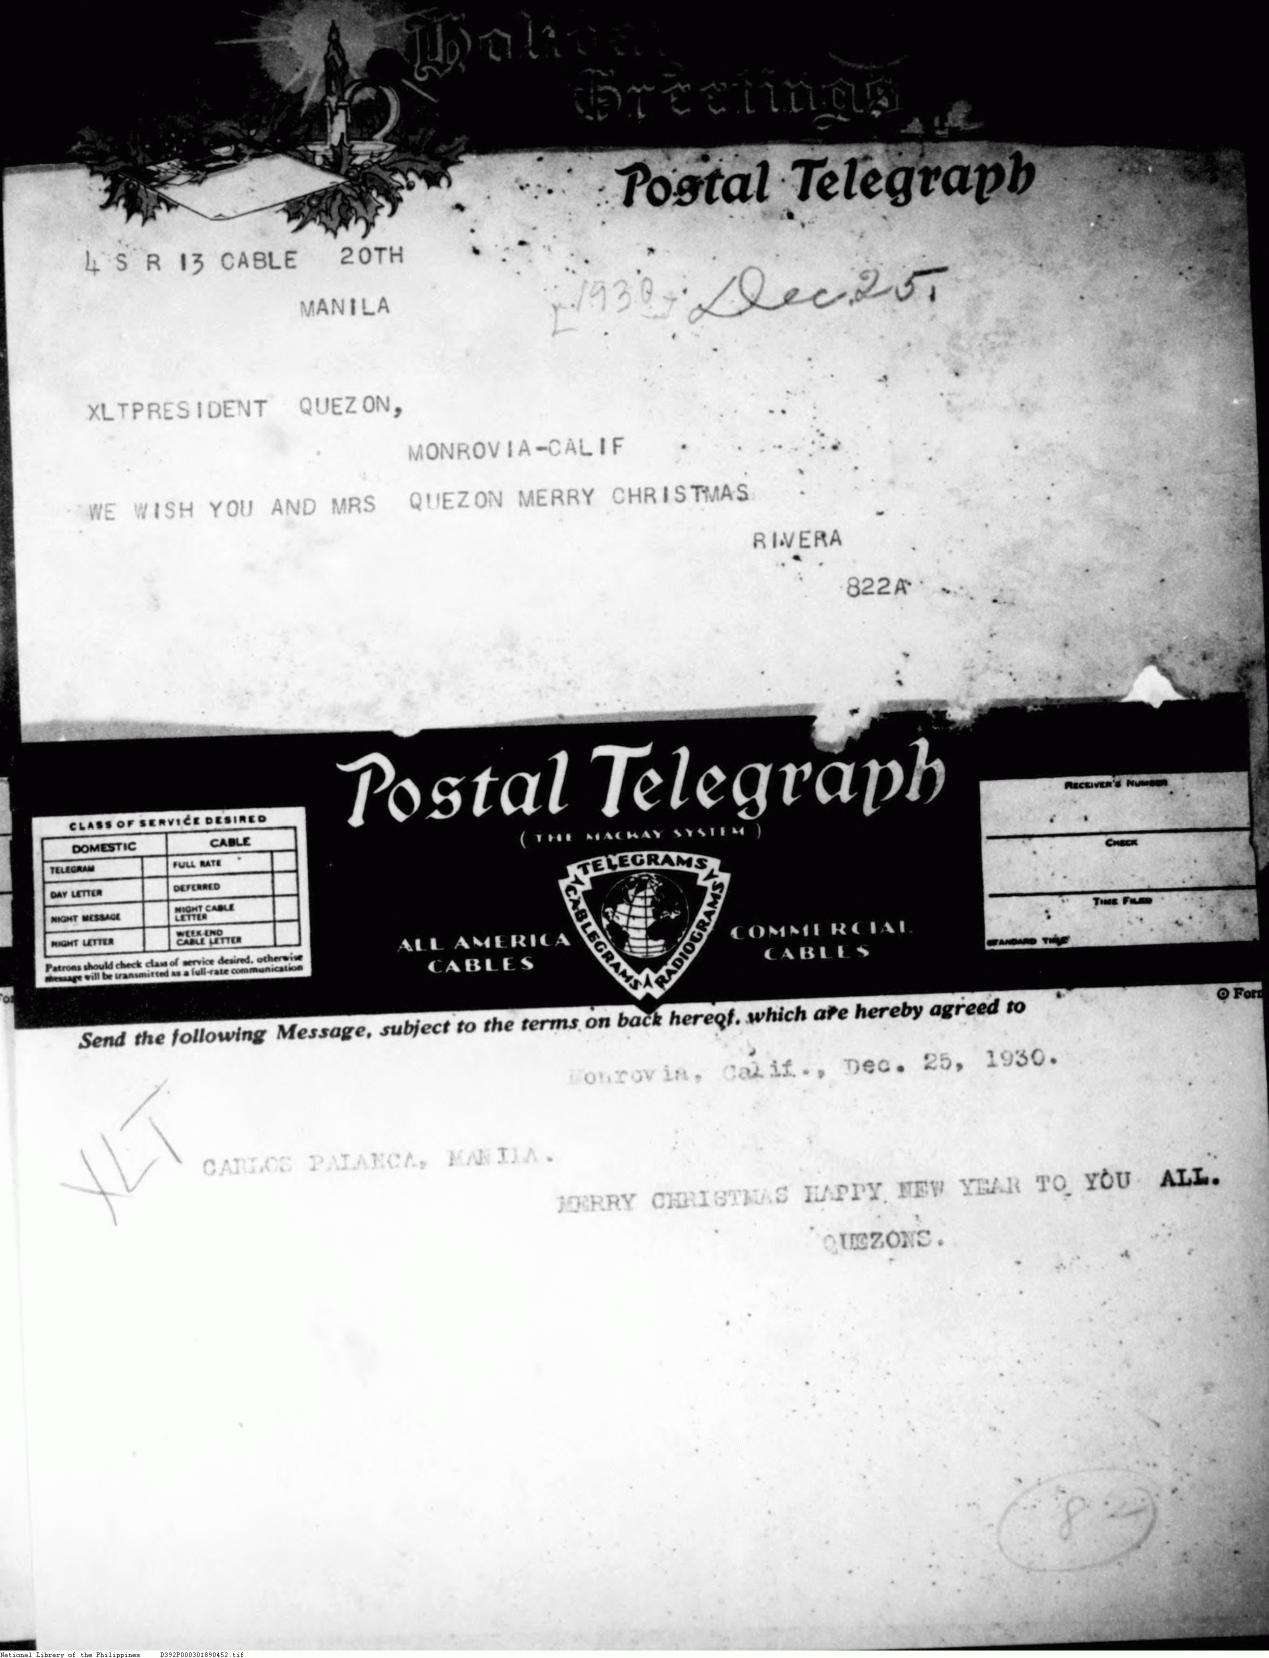 Holiday
Greetings
Postal Telegraph
4 S R 13 CABLE 20TH
MANILA
[1930] Dec 25.
XLTPRESIDENT QUEZON,
MONROVIA-CALIF
WE WISH YOU AND MRS QUEZON MERRY CHRISTMAS
RIVERA
822A
Postal Telegraph
(THE MACKAY SYSTEM)
CLASS OF SERVICE DESIRED
DOMESTIC CABLE
TELEGRAM FULL RATE
DAY LETTER DEFERRED
NIGHT MESSAGE NIGHT CABLE LETTER
NIGHT LETTER WEEK-END CABLE LETTER
Patrons should check class of service desired, otherwise
message will be transmitted as a full-rate communication
TELEGRAMS
CABLEGRAMS
RADIOGRAMS
ALL AMERICA
CABLES
COMMERCIAL
CABLES
RECEIVER'S NUMBER
CHECK
TIME FILED
STANDARD TIME
Form
Send the following Message, subject to the terms on back hereof, which are hereby agreed to
Monrovia, Calif., Dec. 25, 1930.
XLT
CARLOS PALANCA, MANILA.
MERRY CHRISTMAS HAPPY NEW YEAR TO YOU ALL.
QUEZONS.
National Library of the Philippines D392P000301890452.tif